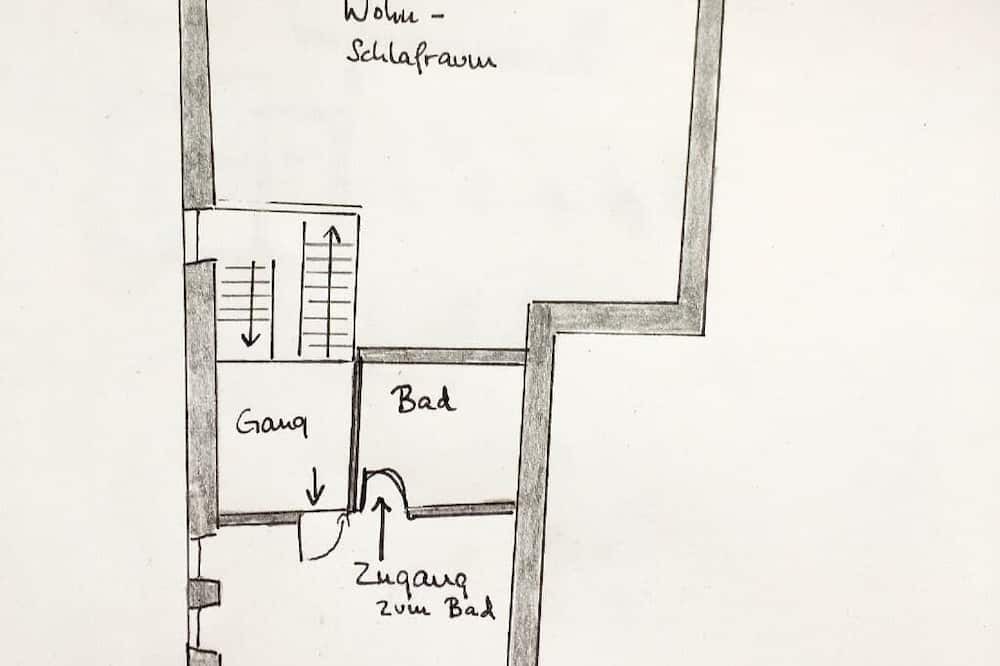 Wohn -
Schlafraum
Bad
Gang
Zugang
zum Bad